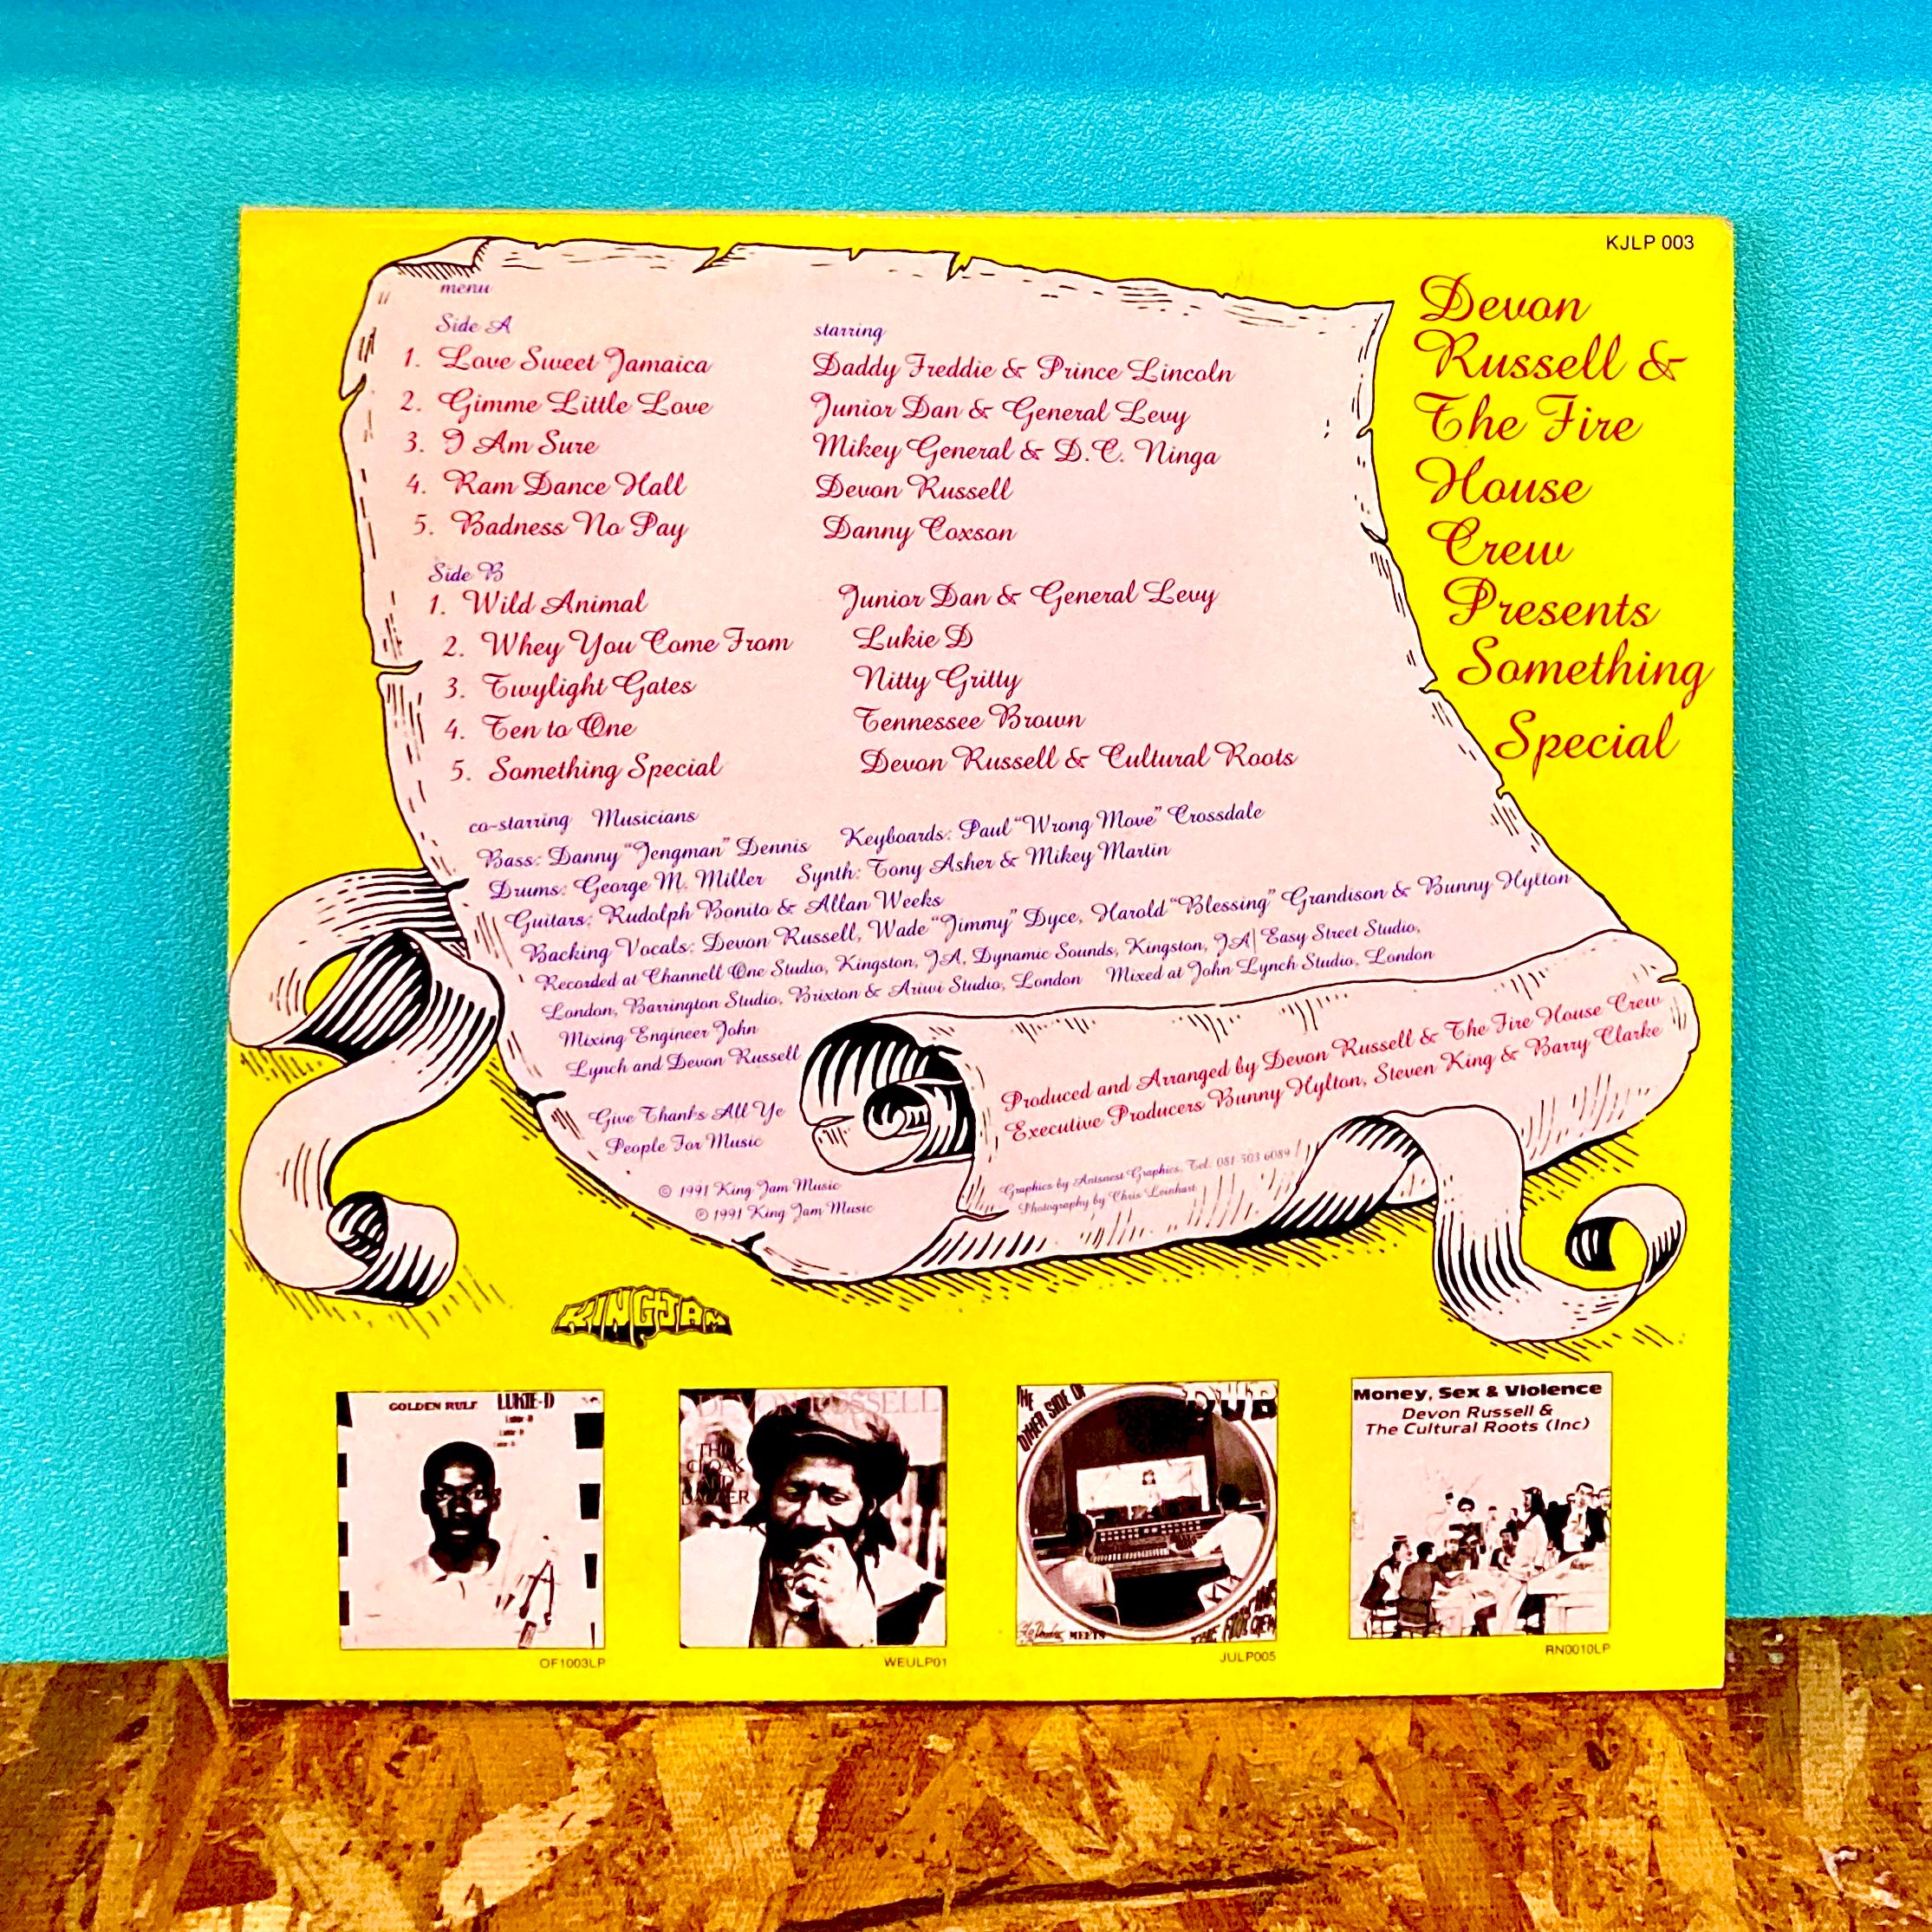 KJLP 003
Devon
Russell &
The Fire
House
Crew
Presents
Something
Special
menu
Side A starring
1. Love Sweet Jamaica Daddy Freddie & Prince Lincoln
2. Gimme Little Love Junior Dan & General Levy
3. I Am Sure Mikey General & D.C. Ninga
4. Ram Dance Hall Devon Russell
5. Badness No Pay Danny Coxson
Side B
1. Wild Animal Junior Dan & General Levy
2. Whey You Come From Lukie D
3. Twylight Gates Nitty Gritty
4. Ten to One Tennessee Brown
5. Something Special Devon Russell & Cultural Roots
co-starring Musicians
Bass: Danny "Jengman" Dennis Keyboards: Paul "Wrong Move" Crossdale
Drums: George M. Miller Synth: Tony Asher & Mikey Martin
Guitars: Rudolph Bonito & Allan Weeks
Backing Vocals: Devon Russell, Wade "Jimmy" Dyce, Harold "Blessing" Grandison & Bunny Hylton
Recorded at Channell One Studio, Kingston, JA, Dynamic Sounds, Kingston, JA| Easy Street Studio,
London, Barrington Studio, Brixton & Ariwi Studio, London Mixed at John Lynch Studio, London
Mixing Engineer John
Lynch and Devon Russell
Give Thanks All Ye
People For Music
© 1991 King Jam Music
℗ 1991 King Jam Music
Produced and Arranged by Devon Russell & The Fire House Crew
Executive Producers Bunny Hylton, Steven King & Barry Clarke
Graphics by Antsnest Graphics, Tel: 081 503 6089
Photography by Chris Leinhart
KINGJAM
GOLDEN RULE LUKIE-D
DEVON RUSSELL
THIS
CLOAK
AND
DAGGER
THE
OTHER SIDE OF
DUB
MEETS
Money, Sex & Violence
Devon Russell &
The Cultural Roots (Inc)
OF1003LP
WEULP01
JULP005
RN0010LP